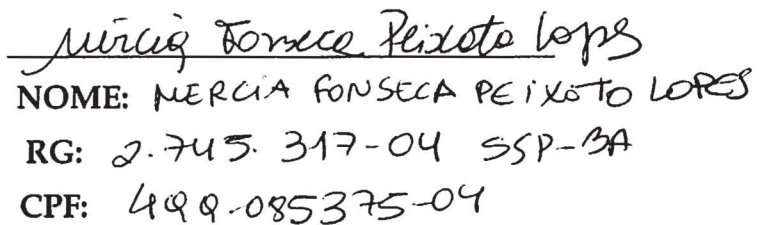 Mércia Fonseca Peixoto Lopes
NOME: MERCIA FONSECA PEIXOTO LOPES
RG: 2.745.317-04 SSP-BA
CPF: 499.085375-04